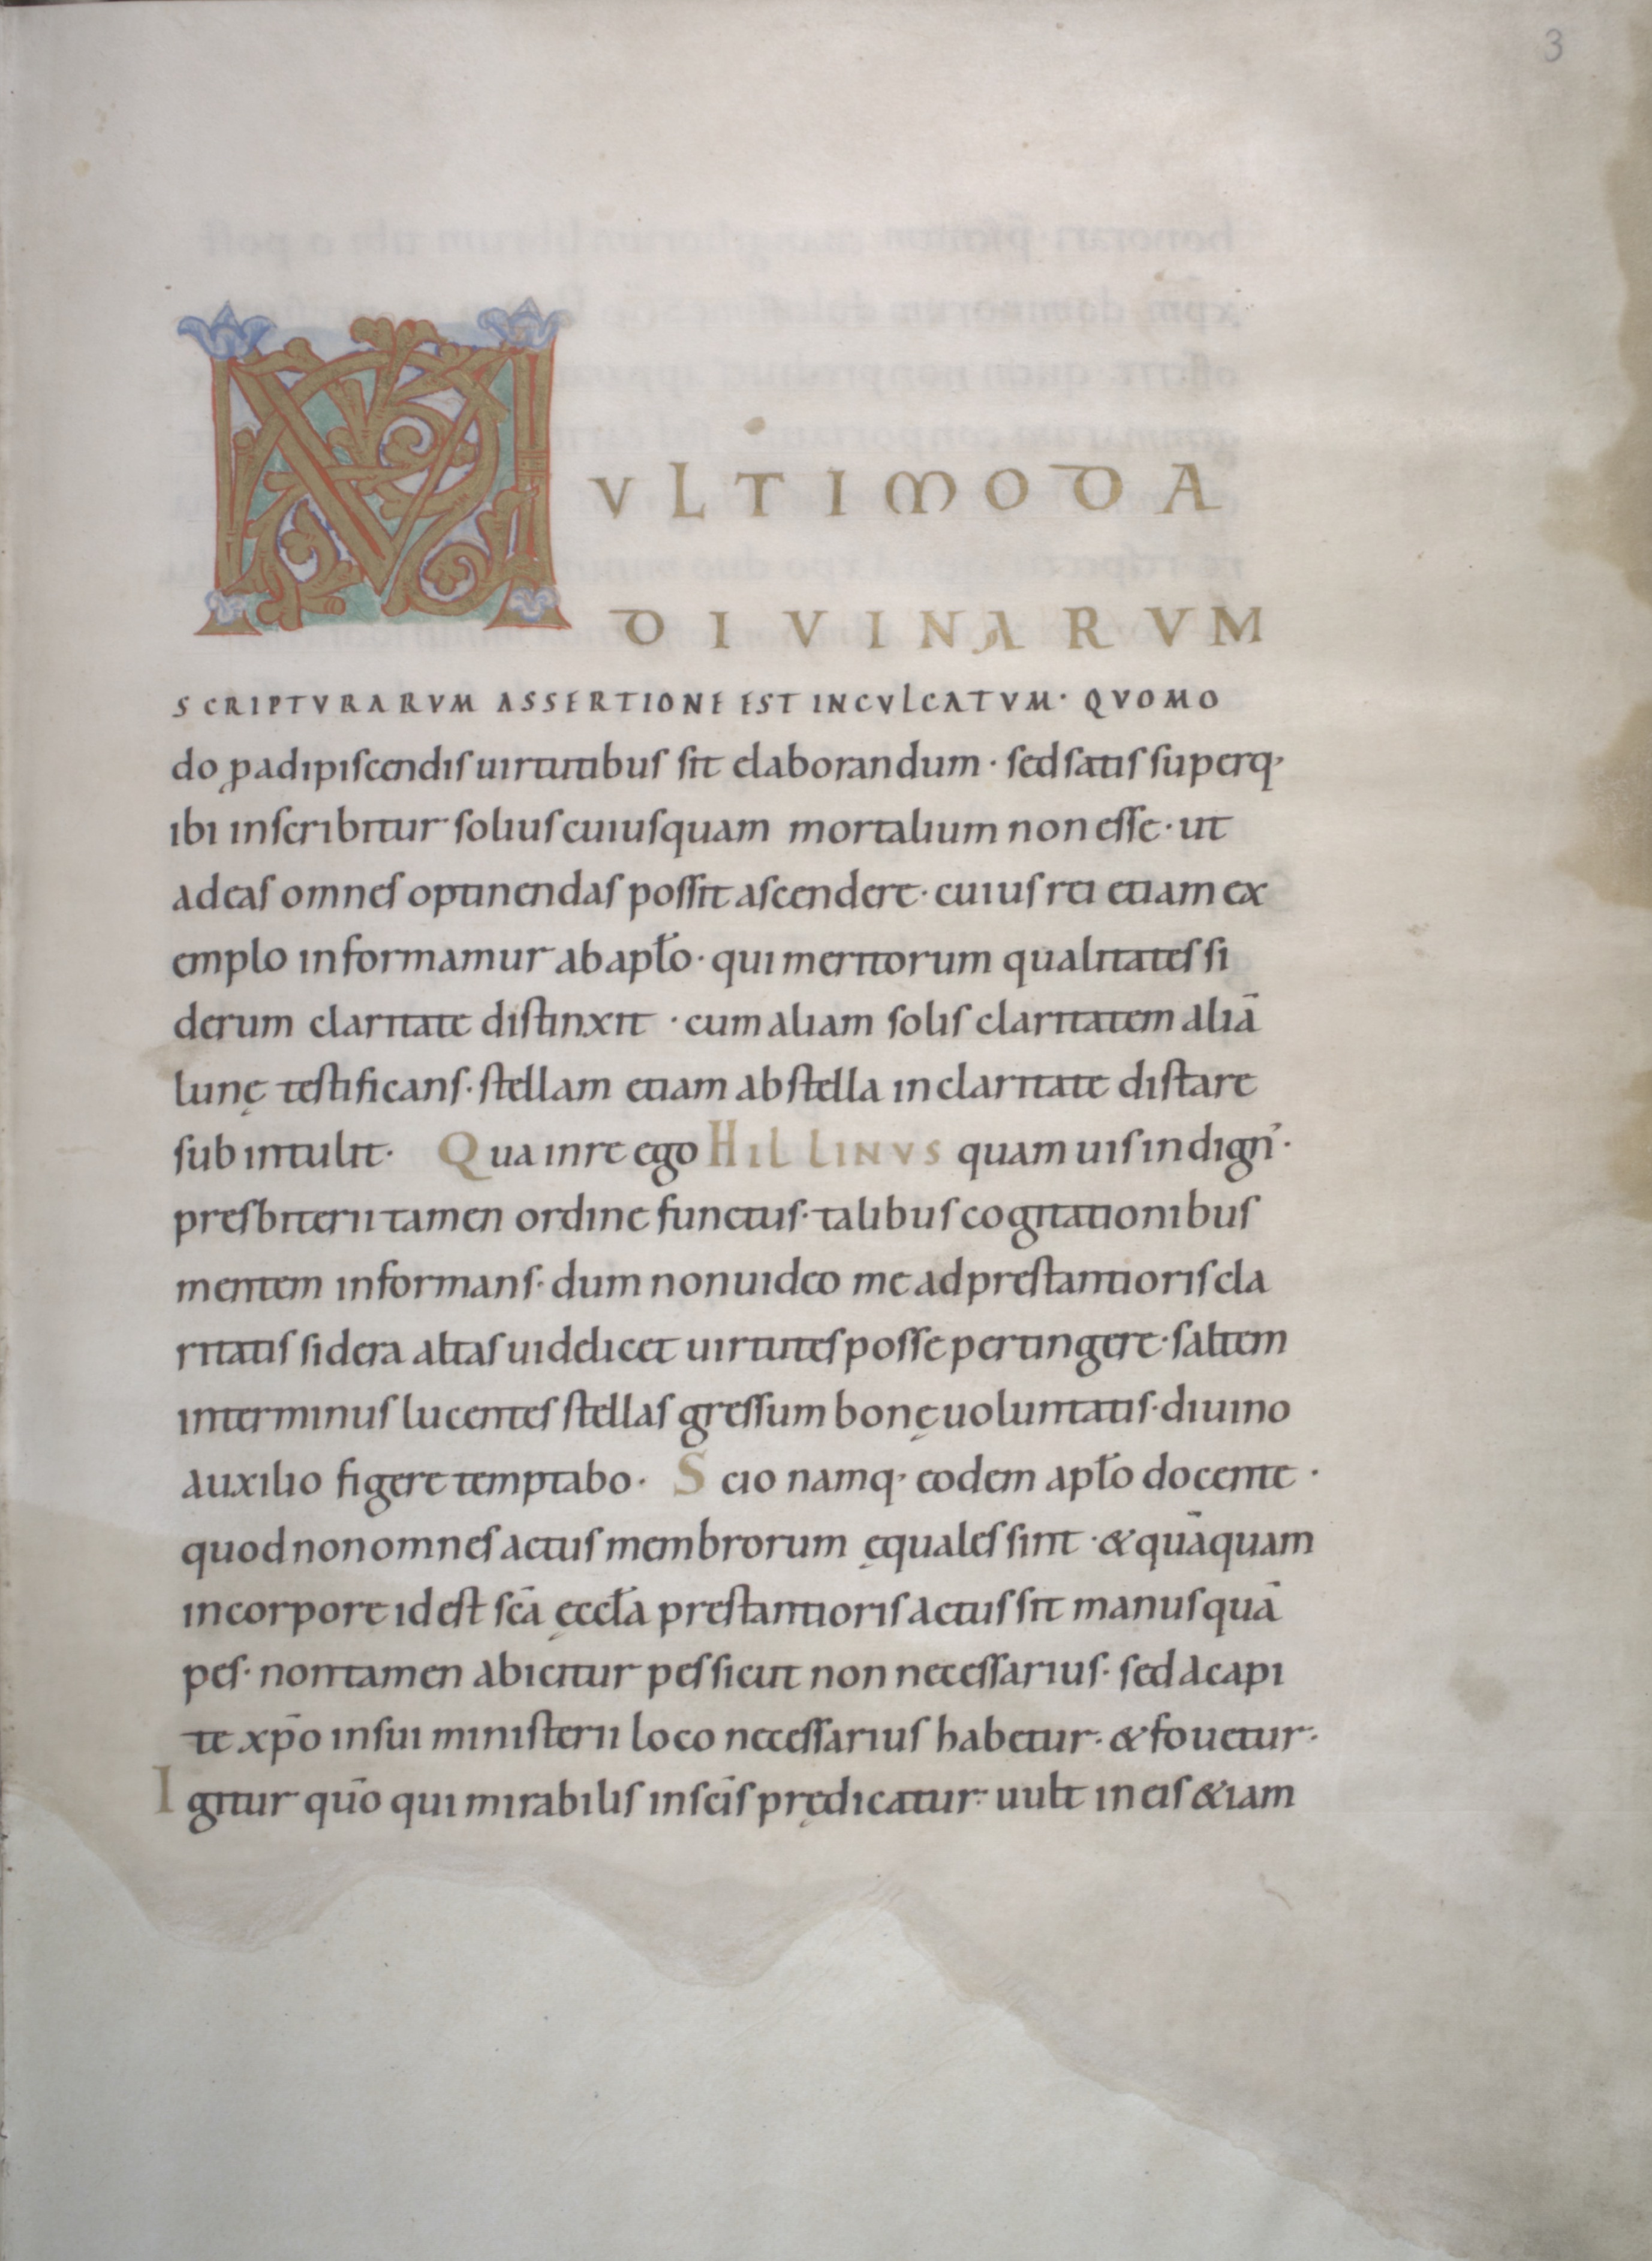 3
MULTIMODA
DIVINARVM
SCRIPTVRARVM ASSERTIONE EST INCVLCATVM· QVOMO
do ꝓ adipiscendis uirtutibus sit elaborandum · sed satis superq·
ibi inscribitur· solius cuiusquam mortalium non esse· ut
ad eas omnes optinendas possit ascendere· cuius rei etiam ex
emplo informamur ab apl̄o· qui meritorum qualitates si
derum claritate distinxit · cum aliam solis claritatem aliā
lunę testificans· stellam etiam ab stella in claritate distare
subintulit· Qua in re ego HILLINVS quam uis indign̄·
presbiterii tamen ordine functus· talibus cogitationibus
mentem informans· dum non uideo me ad prestantioris cla
ritatis sidera altas uidelicet uirtutes posse pertingere· saltem
inter minus lucentes stellas gressum bonę uoluntatis· diuino
auxilio figere temptabo· Scio namq· eodem apl̄o docente ·
quod non omnes actus membrorum ęquales sint · & quāquam
in corpore id est sc̄a ęccl̄a prestantioris actus sit manus quā
pes· non tamen abicitur pes sicut non necessarius· sed a capi
te xp̄o in sui ministerii loco necessarius habetur· & fouetur·
Igitur quō qui mirabilis in sc̄is prędicatur· uult in eis &iam